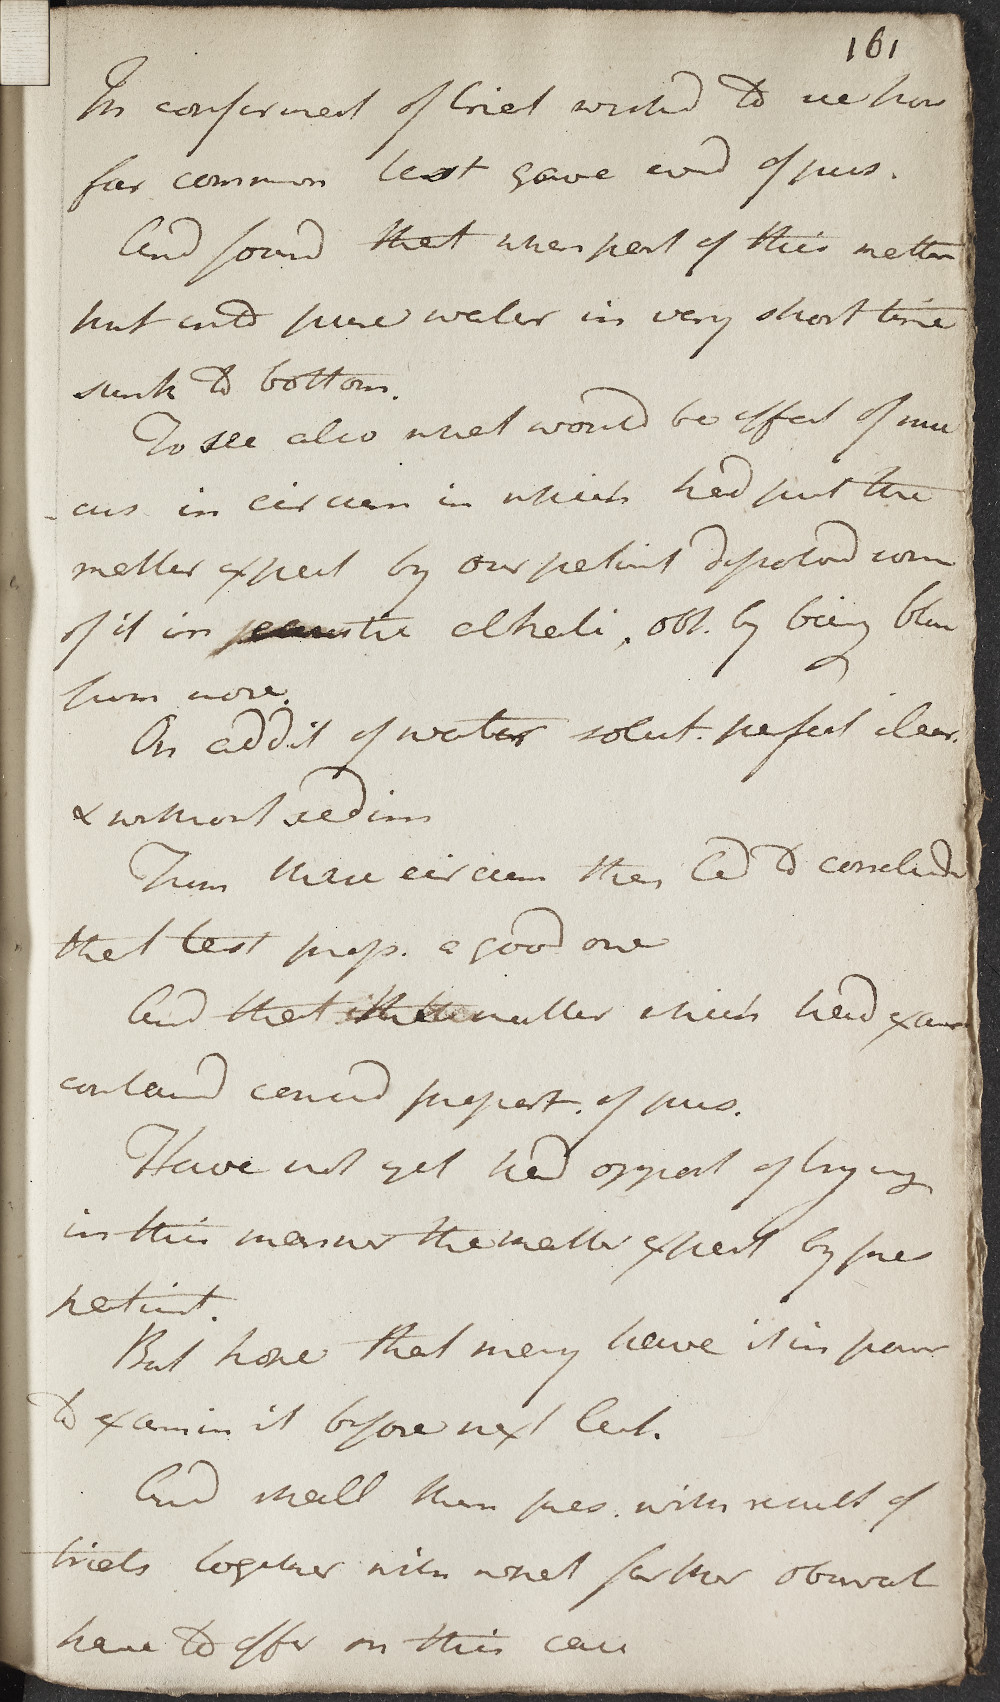 161
In confirmat of trial wished to see how
far common test gave evid of pus.
And found that when part of this matter
put into pure water in very short time
sunk to bottom.
To see also what would be effect of mu
cus in circum in which had put the
matter expect by our patient dissolvd som
of it in caustic alkali, obt. by being blow
from nose.
On addit of water solut. perfect clear.
& without sedim
From these circum then led to conclude
that test prop. a good one
And that matter which had exam
containd consid propert. of pus.
Have not yet had opport of trying
in this manner the matter expect by pres
patient.
But hope that may have it in power
to examin it before next lect.
And shall then pres. with result of
trials together with what farther observat
have to offer on this case